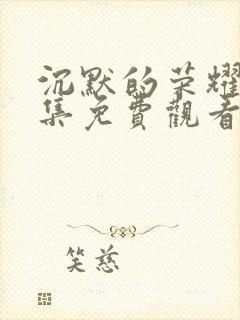 沉默的荣耀
集免費觀看
笑慈